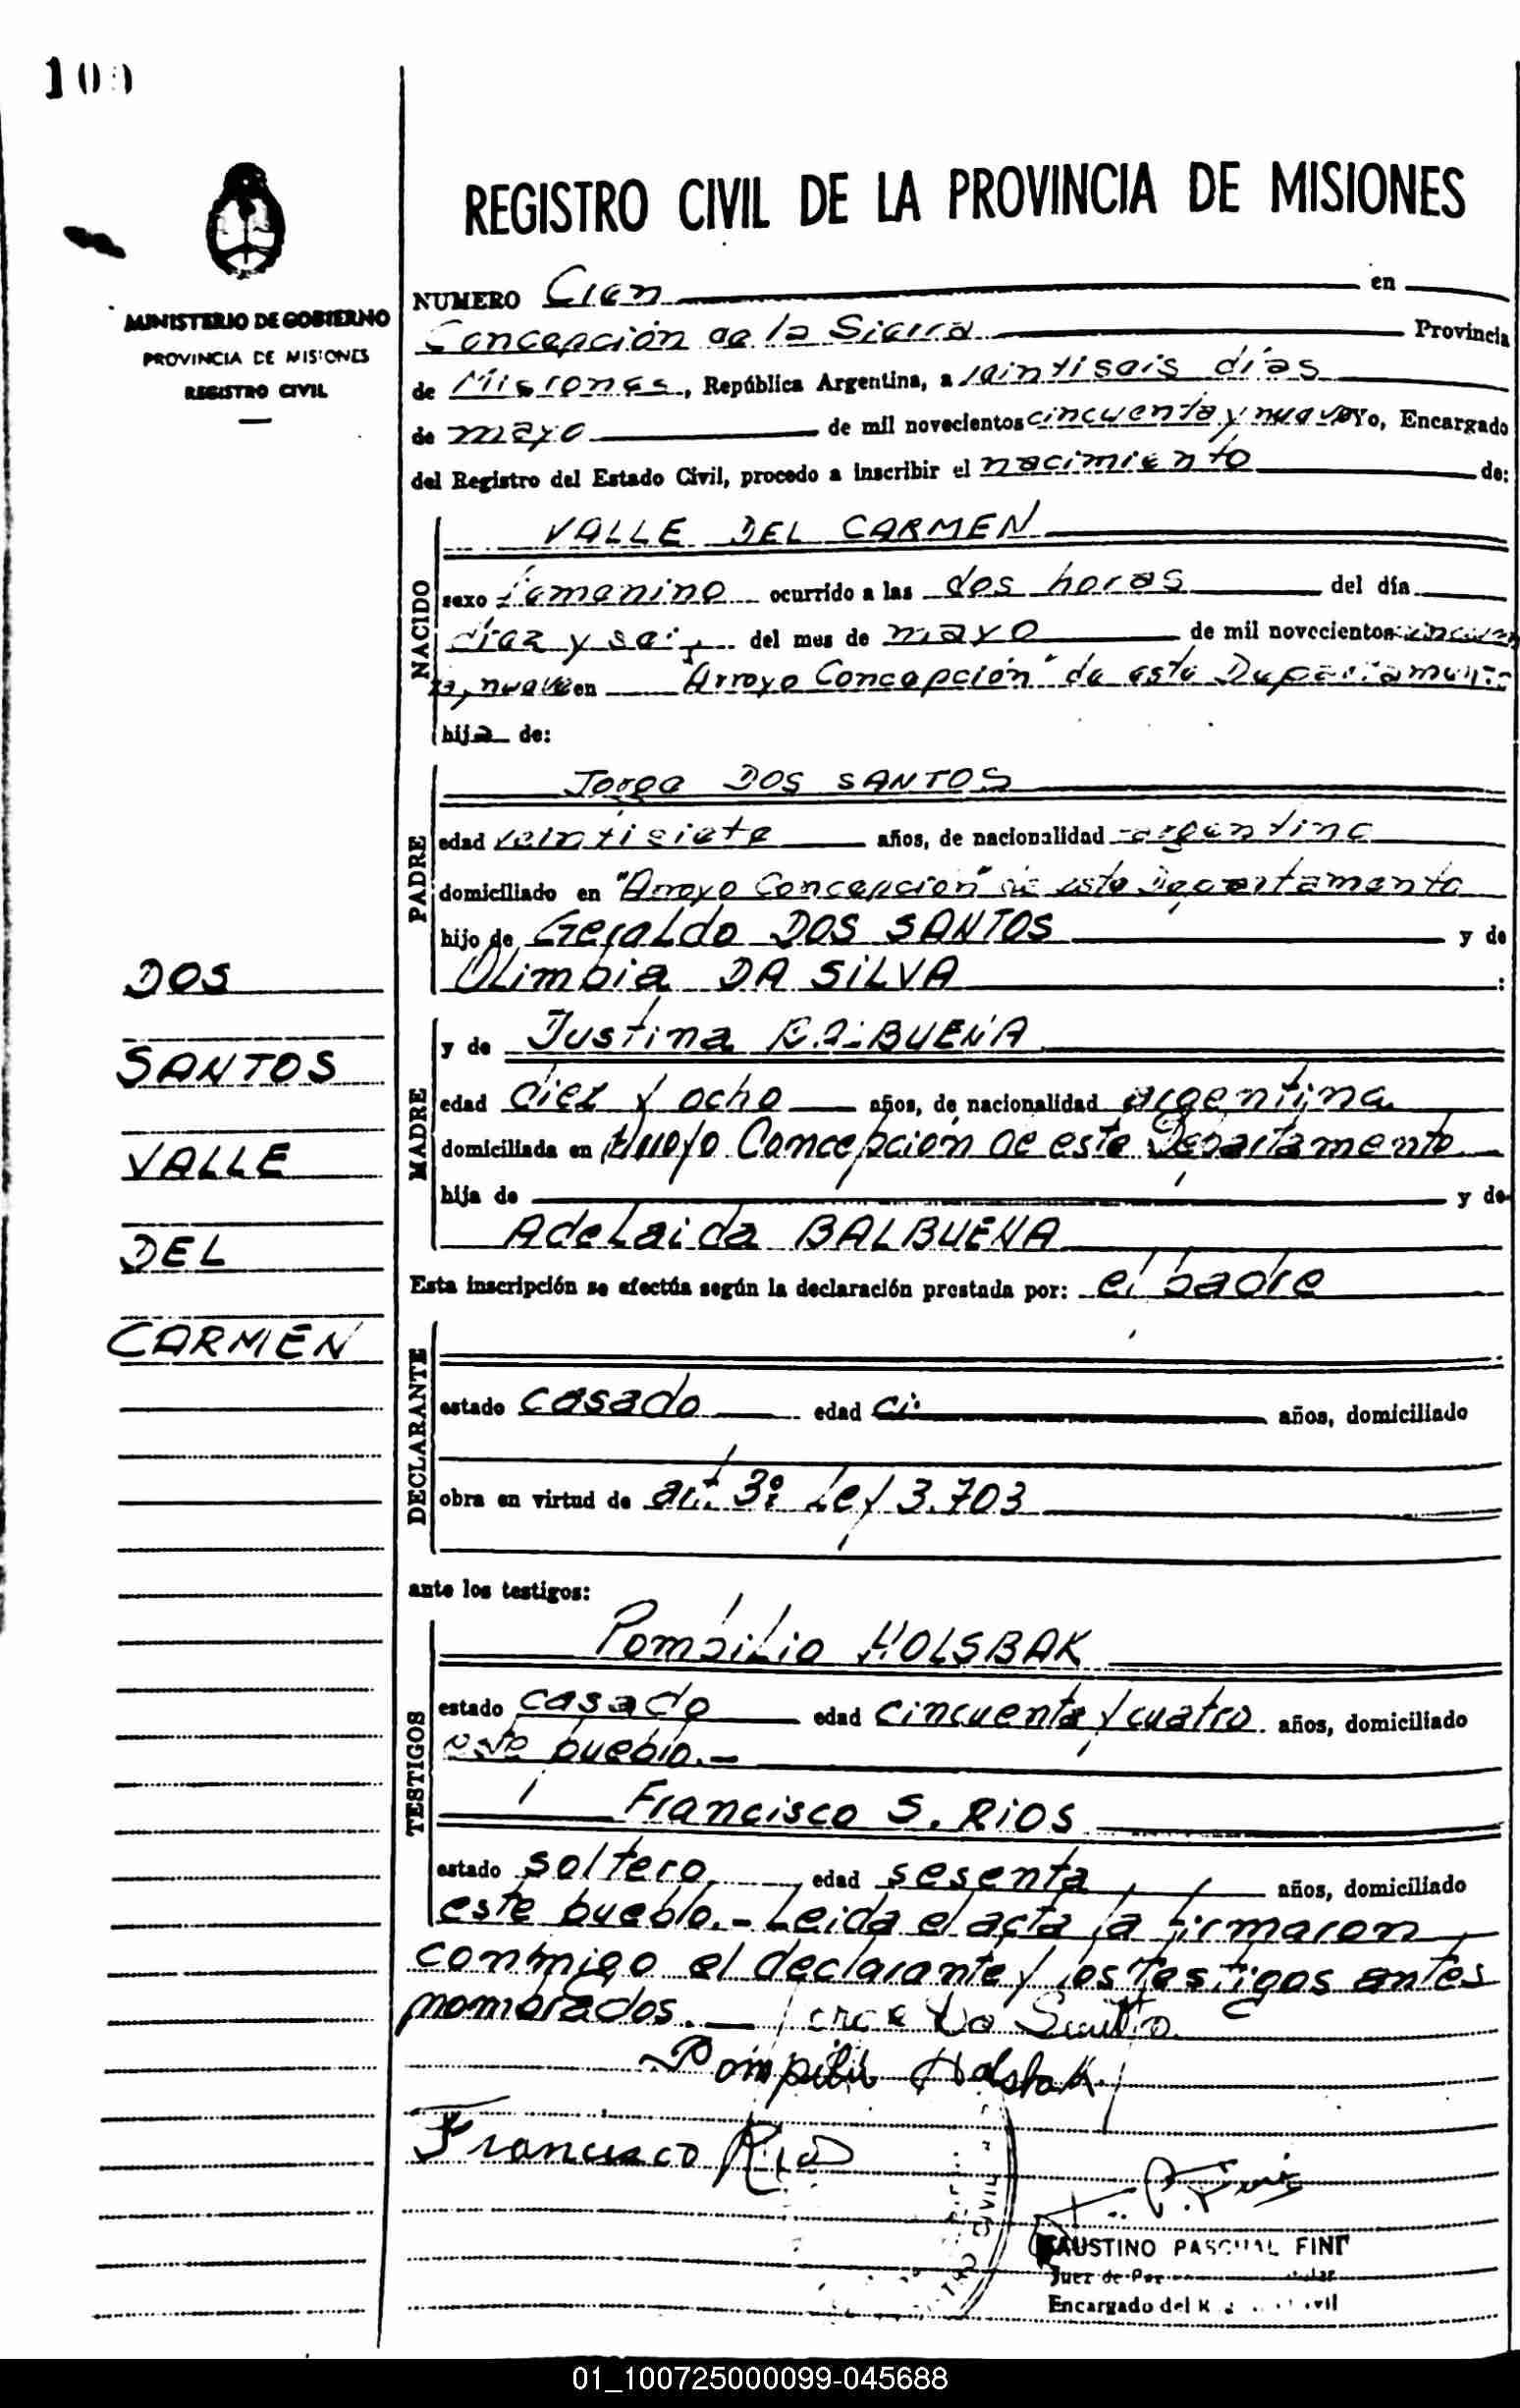 100
MINISTERIO DE GOBIERNO
PROVINCIA DE MISIONES
REGISTRO CIVIL
DOS
SANTOS
VALLE
DEL
CARMEN
REGISTRO CIVIL DE LA PROVINCIA DE MISIONES
NUMERO Cien en
Concepción de la Sierra Provincia
de Misiones, República Argentina, a veintiseis días
de mayo de mil novecientos cincuenta y nueve Yo, Encargado
del Registro del Estado Civil, procedo a inscribir el nacimiento de:
NACIDO
VALLE DEL CARMEN
sexo femenino ocurrido a las dos horas del día
diez y seis del mes de mayo de mil novecientos cincuen
ta y nueve en "Arroyo Concepción" de este Departamento
hija de:
PADRE
Jorge DOS SANTOS
edad veintisiete años, de nacionalidad argentino
domiciliado en "Arroyo Concepción" de este Departamento
hijo de Geraldo DOS SANTOS y de
Olimpia DA SILVA :
MADRE
y de Justina BUENA
edad diez y ocho años, de nacionalidad argentina
domiciliada en Arroyo Concepción de este Departamento
hija de y de
Adelaida BALBUENA
Esta inscripción se efectúa según la declaración prestada por: el padre
DECLARANTE
estado casado edad años, domiciliado
obra en virtud de art. 3º Ley 3.703
ante los testigos:
TESTIGOS
Pompilio HOLSBAK
estado casado edad cincuenta y cuatro años, domiciliado
este pueblo.-
Francisco S. RIOS
estado soltero edad sesenta años, domiciliado
este pueblo.- Leida el acta la firmaron
conmigo el declarante y los testigos antes
nombrados.-
Pompilio Holsbak
Francisco Rios
FAUSTINO PASCUAL FINI
Juez de Paz
Encargado del Civil
01_100725000099-045688